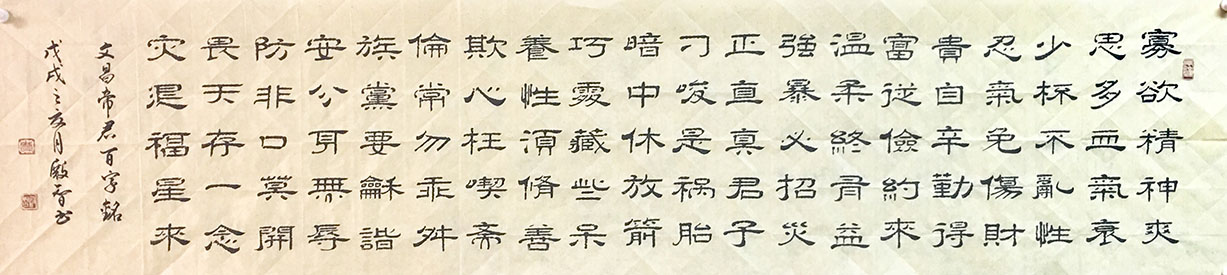 寡欲精神爽
思多血氣衰
少杯不亂性
忍氣免傷財
貴自辛勤得
富從儉約來
温柔終有益
強暴必招災
正直真君子
刁唆是禍胎
暗中休放箭
巧處藏些呆
養性須脩善
欺心枉喫斋
倫常勿乖舛
族黨要龢諧
安分耳無辱
防非口莫開
畏天存一念
灾退福星來
文昌帝君百字銘
戊戌之五月